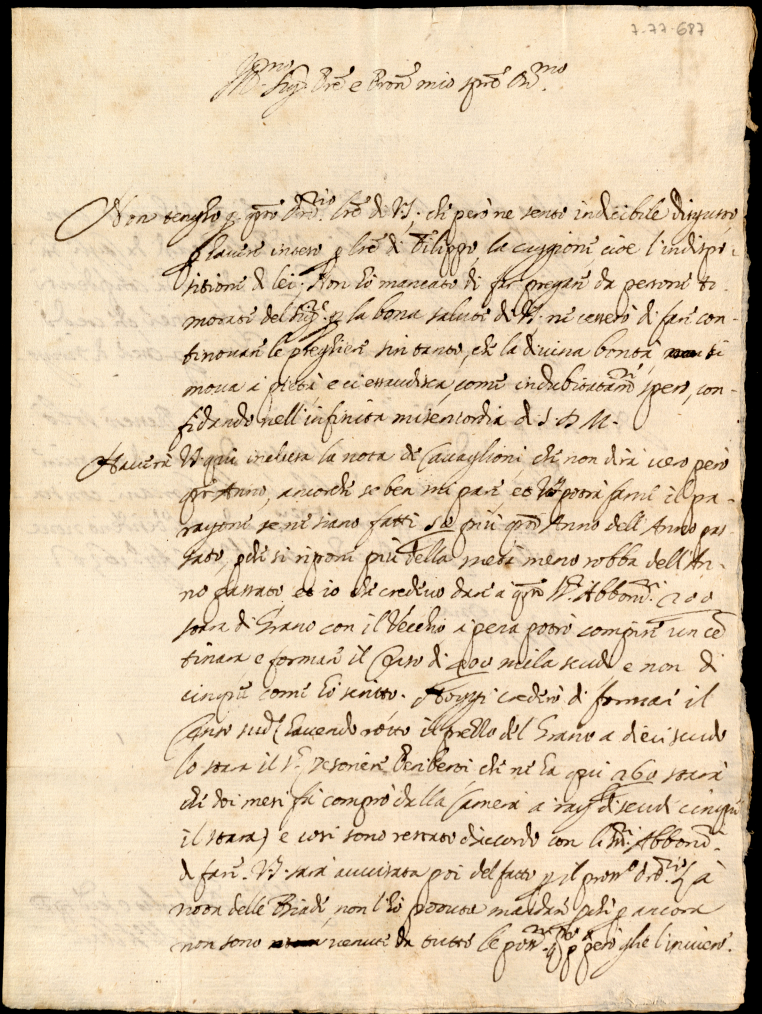 7-77-687
Ill.mo Sig.r e Pron mio
Non tengho q. qsto Ord.rio lre di VS. che però ne sento indicibile disgusto,
havere inteso p lre di Filippo, la caggione cioe l'indispo-
sitione di lei. Non hò mancato di far pregare da persone ti-
morate del Sig.re p la bona salute di VS. ne cesserò di fare con-
tinovare le preghiere sin tanto, che la divina bontà si
mova a pietà e ci essaudisca, come indubitatam.te spero, con-
fidando nell'infinita misericordia di S. D. M.
Haverà VS qui inclusa la nota de Cavaglioni che non dirà vero però
qsto Anno, ancorche se ben mi pare et VS potrà farne il pa-
ragone se ne siano fatti più qsto Anno dell'Anno pas-
sato, pche si ripone più della metà meno robba dell'An-
no passato et io che credevo dare a qsto Sr Abbond. 200
stara di Grano con il Vecchio a pena potrò compire un ce
tinara e formare il Censo di 400 mila scudi e non di
cinque come hò scritto. Hoggi crederò di formare il
Censo sud. havendo rotto il prezzo del Grano a dieci scudi
lo stara il Sr Tesoriere che ne ha qui 260 stara
che doi mesi fà comprò dalla Camera a rag. di scudi cinque
il stara) e così sono restato d'accordo con Abbond.
di fare. VS. sarà avvisata poi del fatto p il pross.o ord.rio Là
nota delle Biade, non l'hò potuta mandare pche p ancora
non sono venute da tutte le però ghe l'inviero.